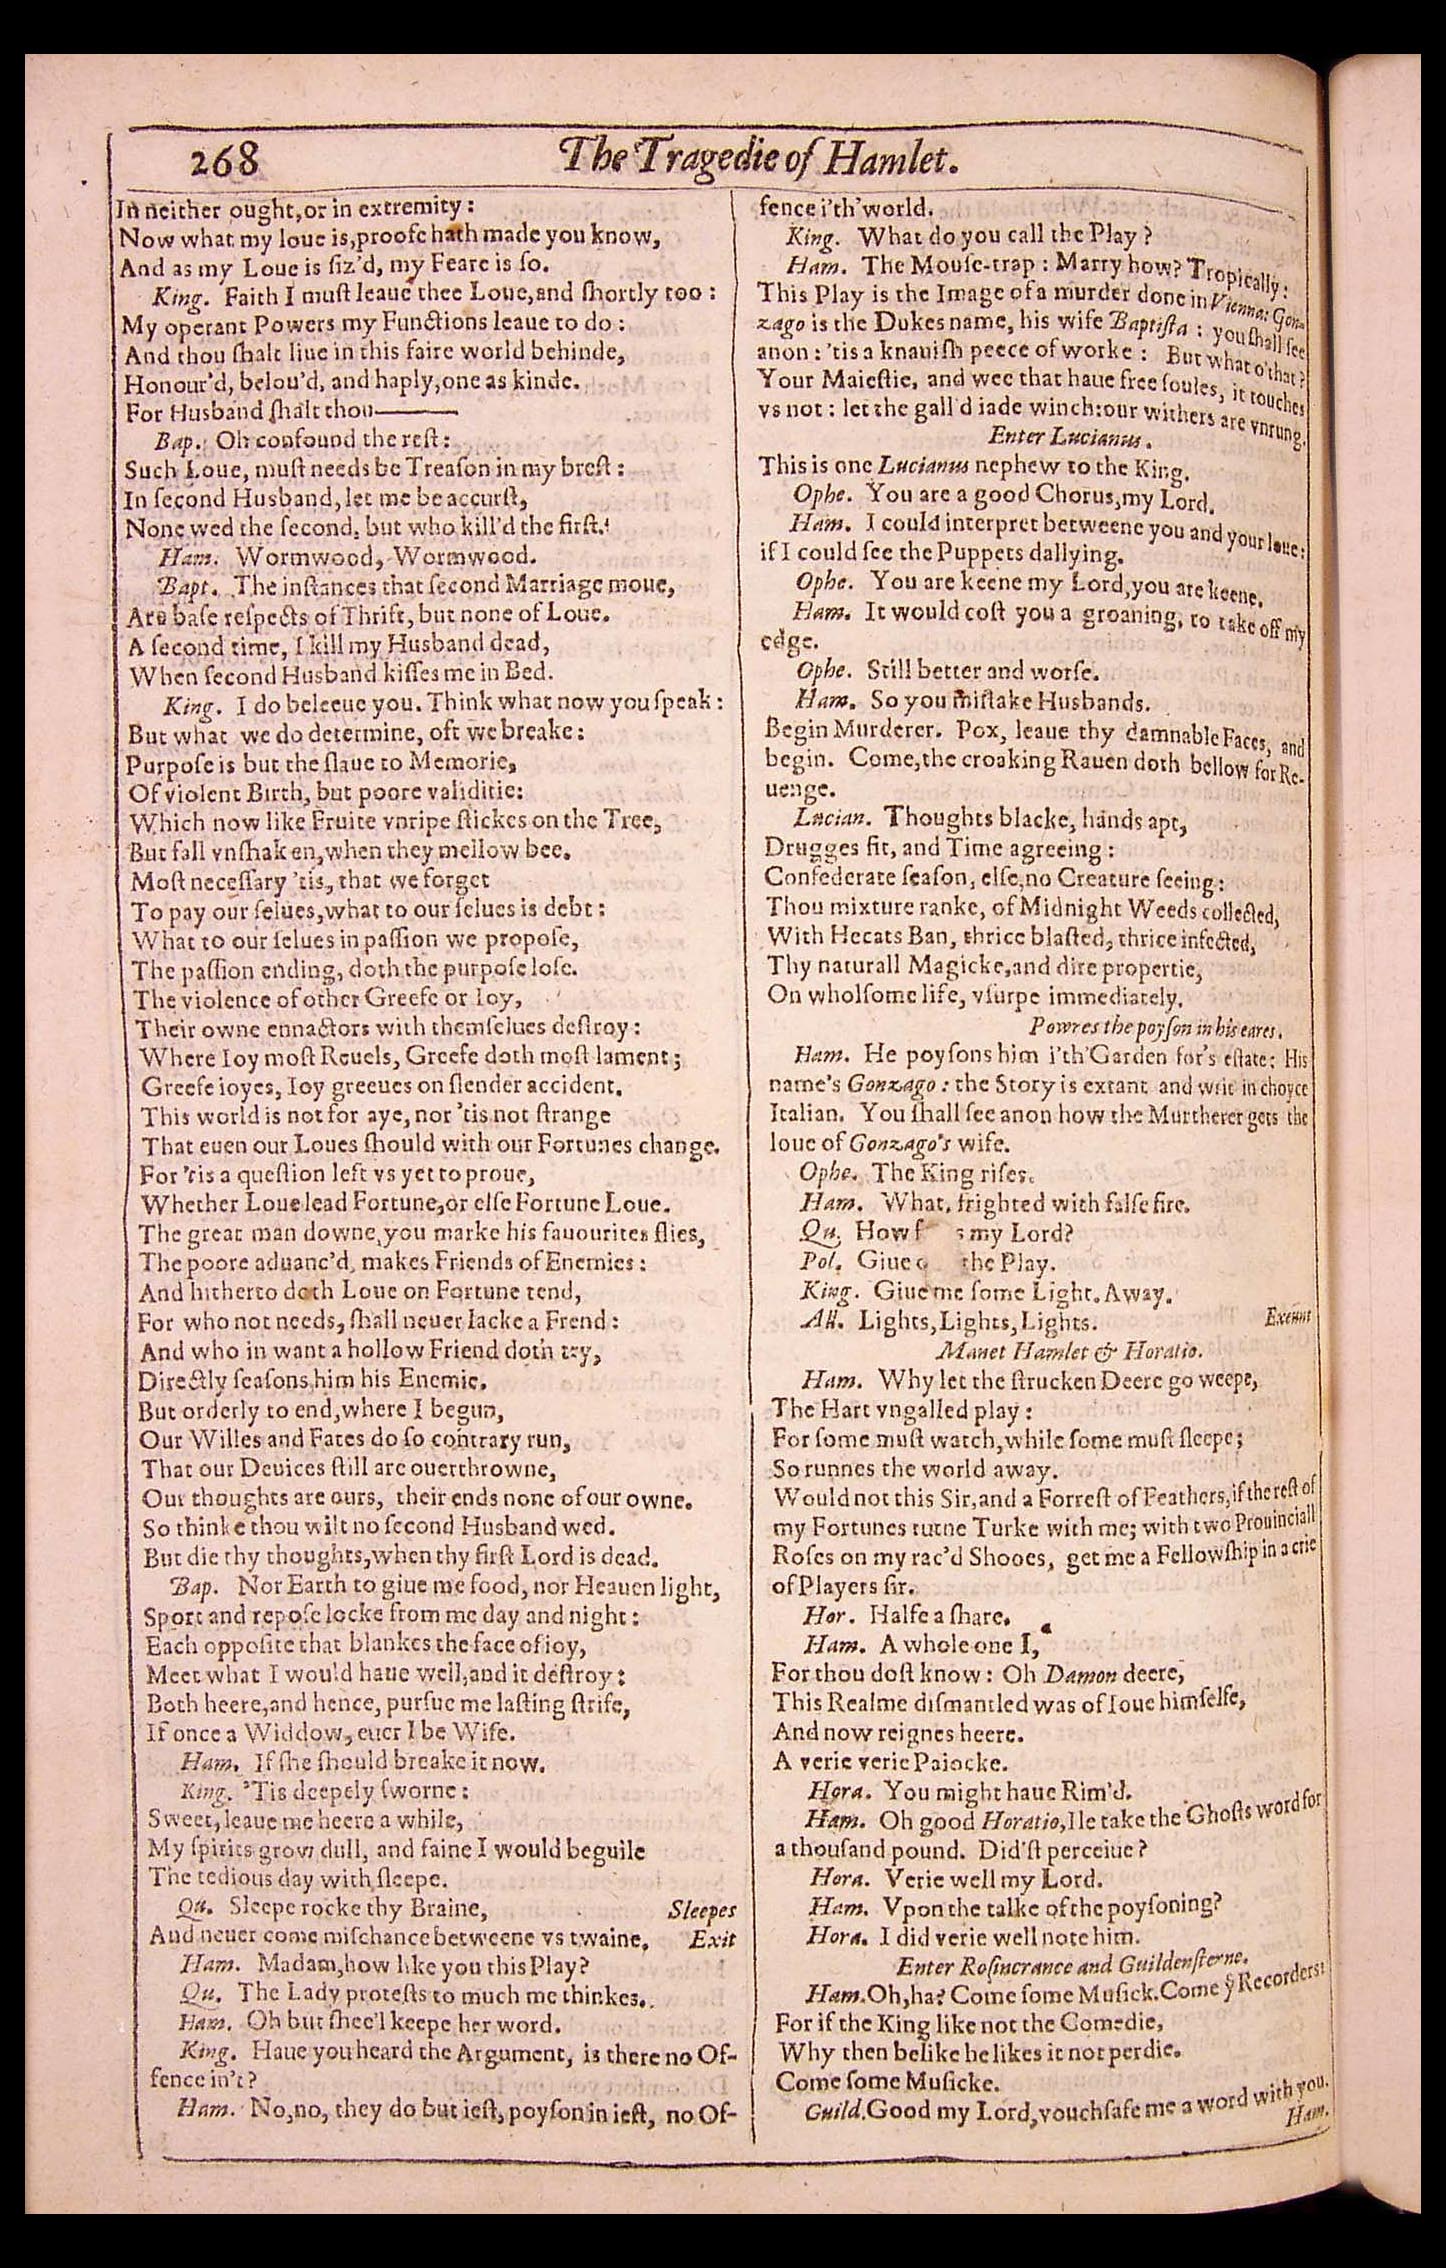 268
The Tragedie of Hamlet.
In neither ought, or in extremity:
Now what my loue is, proofe hath made you know,
And as my Loue is ſiz'd, my Feare is ſo.
King. Faith I muſt leaue thee Loue, and ſhortly too:
My operant Powers my Functions leaue to do:
And thou ſhalt liue in this faire world behinde,
Honour'd, belou'd, and haply, one as kinde.
For Husband ſhalt thou———
Bap. Oh confound the reſt:
Such Loue, muſt needs be Treaſon in my breſt:
In ſecond Husband, let me be accurſt,
None wed the ſecond, but who kill'd the firſt.
Ham. Wormwood, Wormwood.
Bapt. The inſtances that ſecond Marriage moue,
Are baſe reſpects of Thrift, but none of Loue.
A ſecond time, I kill my Husband dead,
When ſecond Husband kiſſes me in Bed.
King. I do beleeue you. Think what now you ſpeak:
But what we do determine, oft we breake:
Purpoſe is but the ſlaue to Memorie,
Of violent Birth, but poore validitie:
Which now like Fruite vnripe ſtickes on the Tree,
But fall vnſhaken, when they mellow bee.
Moſt neceſſary 'tis, that we forget
To pay our ſelues, what to our ſelues is debt:
What to our ſelues in paſſion we propoſe,
The paſſion ending, doth the purpoſe loſe.
The violence of other Greefe or Ioy,
Their owne ennactors with themſelues deſtroy:
Where Ioy moſt Reuels, Greefe doth moſt lament;
Greefe ioyes, Ioy greeues on ſlender accident.
This world is not for aye, nor 'tis not ſtrange
That euen our Loues ſhould with our Fortunes change.
For 'tis a queſtion left vs yet to proue,
Whether Loue lead Fortune, or elſe Fortune Loue.
The great man downe, you marke his fauourites flies,
The poore aduanc'd, makes Friends of Enemies:
And hitherto doth Loue on Fortune tend,
For who not needs, ſhall neuer lacke a Frend:
And who in want a hollow Friend doth try,
Directly ſeaſons him his Enemie.
But orderly to end, where I begun,
Our Willes and Fates do ſo contrary run,
That our Deuices ſtill are ouerthrowne,
Our thoughts are ours, their ends none of our owne.
So thinke thou wilt no ſecond Husband wed.
But die thy thoughts, when thy firſt Lord is dead.
Bap. Nor Earth to giue me food, nor Heauen light,
Sport and repoſe locke from me day and night:
Each oppoſite that blankes the face of ioy,
Meet what I would haue well, and it deſtroy:
Both heere, and hence, purſue me laſting ſtrife,
If once a Widdow, euer I be Wife.
Ham. If ſhe ſhould breake it now.
King. 'Tis deepely ſworne:
Sweet, leaue me heere a while,
My ſpirits grow dull, and faine I would beguile
The tedious day with ſleepe.
Qu. Sleepe rocke thy Braine, Sleepes
And neuer come miſchance betweene vs twaine. Exit
Ham. Madam, how like you this Play?
Qu. The Lady proteſts to much me thinkes.
Ham. Oh but ſhee'l keepe her word.
King. Haue you heard the Argument, is there no Of-
fence in't?
Ham. No, no, they do but ieſt, poyſon in ieſt, no Of-
fence i'th'world.
King. What do you call the Play?
Ham. The Mouſe-trap: Marry how? Tropically:
This Play is the Image of a murder done in Vienna: Gon-
zago is the Dukes name, his wife Baptiſta: you ſhall ſee
anon: 'tis a knauiſh peece of worke: But what o'that?
Your Maieſtie, and wee that haue free ſoules, it touches
vs not: let the gall'd iade winch: our withers are vnrung.
Enter Lucianus.
This is one Lucianus nephew to the King.
Ophe. You are a good Chorus, my Lord.
Ham. I could interpret betweene you and your loue:
if I could ſee the Puppets dallying.
Ophe. You are keene my Lord, you are keene.
Ham. It would coſt you a groaning, to take off my
edge.
Ophe. Still better and worſe.
Ham. So you miſtake Husbands.
Begin Murderer. Pox, leaue thy damnable Faces, and
begin. Come, the croaking Rauen doth bellow for Re-
uenge.
Lucian. Thoughts blacke, hands apt,
Drugges fit, and Time agreeing:
Confederate ſeaſon, elſe, no Creature ſeeing:
Thou mixture ranke, of Midnight Weeds collected,
With Hecats Ban, thrice blaſted, thrice infected,
Thy naturall Magicke, and dire propertie,
On wholſome life, vſurpe immediately.
Powres the poyſon in his eares.
Ham. He poyſons him i'th'Garden for's eſtate: His
name's Gonzago: the Story is extant and writ in choyce
Italian. You ſhall ſee anon how the Murtherer gets the
loue of Gonzago's wife.
Ophe. The King riſes.
Ham. What, frighted with falſe fire.
Qu. How f s my Lord?
Pol. Giue o the Play.
King. Giue me ſome Light. Away.
All. Lights, Lights, Lights. Exeunt
Manet Hamlet & Horatio.
Ham. Why let the ſtrucken Deere go weepe,
The Hart vngalled play:
For ſome muſt watch, while ſome muſt ſleepe;
So runnes the world away.
Would not this Sir, and a Forreſt of Feathers, if the reſt of
my Fortunes turne Turke with me; with two Prouinciall
Roſes on my rac'd Shooes, get me a Fellowſhip in a crie
of Players ſir.
Hor. Halfe a ſhare.
Ham. A whole one I,
For thou doſt know: Oh Damon deere,
This Realme diſmantled was of Ioue himſelfe,
And now reignes heere.
A verie verie Paiocke.
Hora. You might haue Rim'd.
Ham. Oh good Horatio, Ile take the Ghoſts word for
a thouſand pound. Did'ſt perceiue?
Hora. Verie well my Lord.
Ham. Vpon the talke of the poyſoning?
Hora. I did verie well note him.
Enter Roſincrance and Guildenſterne.
Ham. Oh, ha? Come ſome Muſick. Come yͤ Recorders:
For if the King like not the Comedie,
Why then belike he likes it not perdie.
Come ſome Muſicke.
Guild. Good my Lord, vouchſafe me a word with you.
Ham.